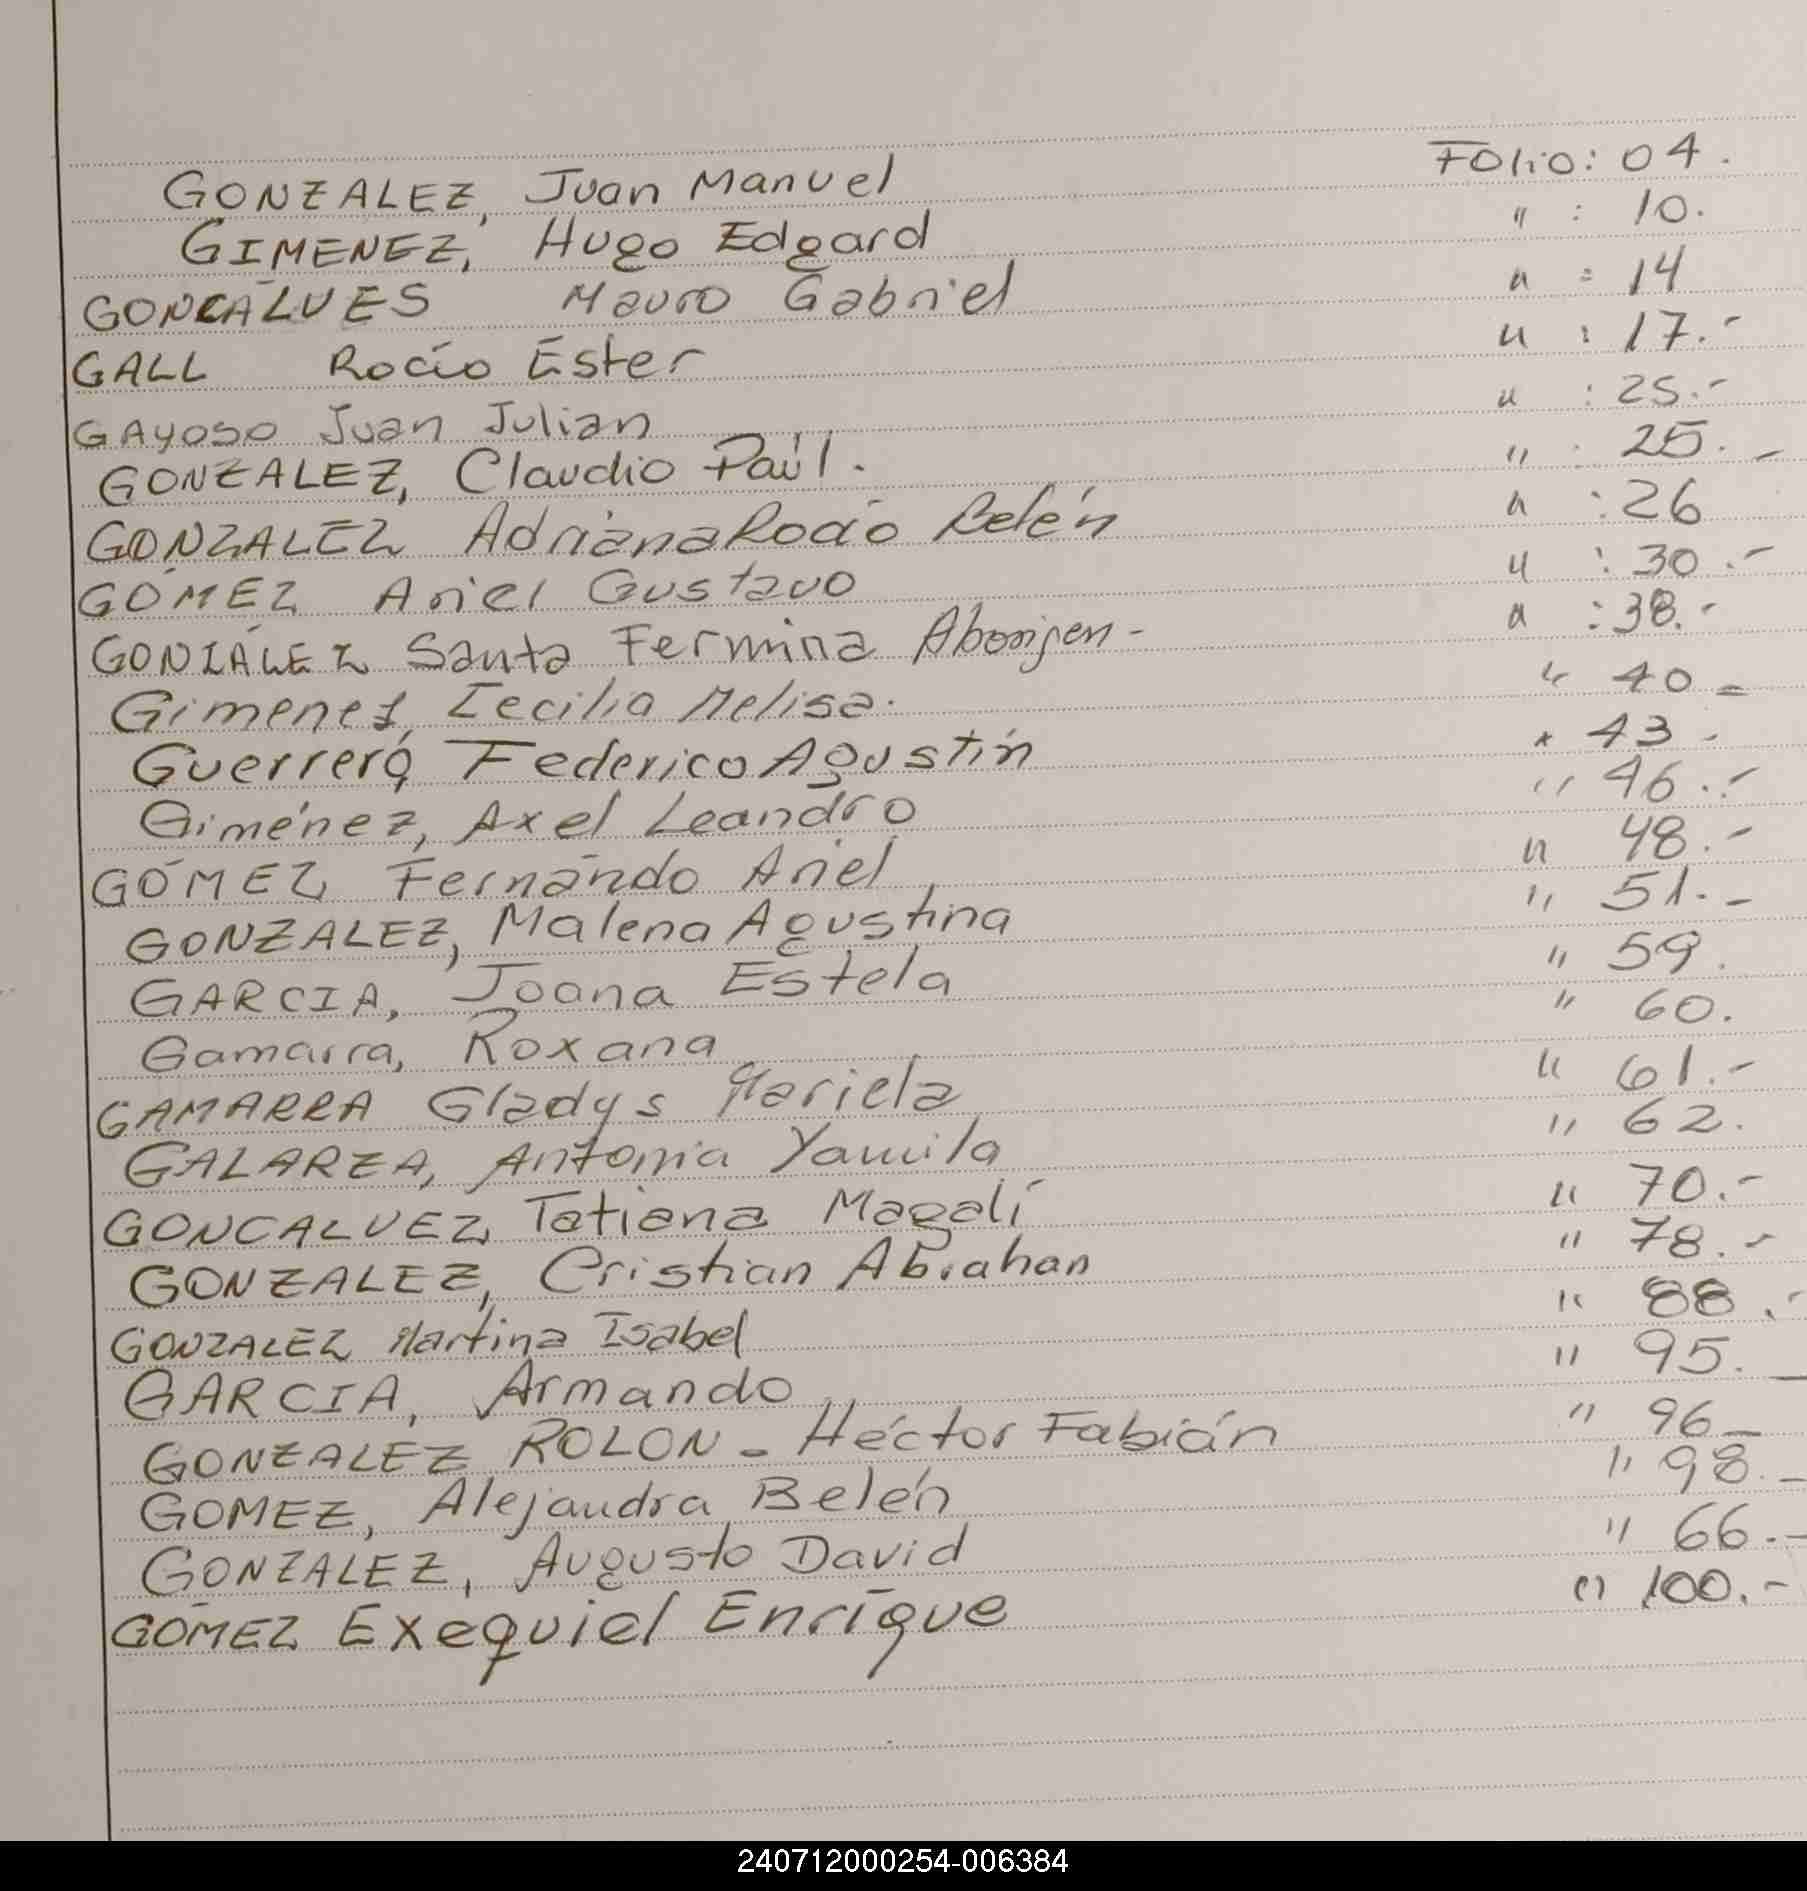 GONZALEZ, Juan Manuel Folio: 04.
GIMENEZ, Hugo Edgard " : 10.
GONCALVES Mauro Gabriel " : 14
GALL Rocío Ester " : 17.-
GAYOSO Juan Julian " : 25.-
GONZALEZ, Claudio Paúl. " : 25.-
GONZALEZ Adriana Rocío Belén " : 26
GÓMEZ Ariel Gustavo " : 30.-
GONZÁLEZ Santa Fermina Aborigen- " : 38.-
Gimenez, Cecilia Melisa. " 40-
Guerrero, Federico Agustín " 43-
Giménez, Axel Leandro " 46.-
GÓMEZ Fernando Ariel " 48.-
GONZALEZ, Malena Agustina " 51.-
GARCIA, Joana Estela " 59.
Gamarra, Roxana " 60.
GAMARRA Gladys Mariela " 61.-
GALARZA, Antonia Yamila " 62.
GONCALVEZ, Tatiana Magalí " 70.-
GONZALEZ, Cristian Abrahan " 78.-
GONZALEZ Martina Isabel " 88.-
GARCIA, Armando " 95._
GONZALEZ ROLON - Héctor Fabián " 96_
GOMEZ, Alejandra Belén " 98.-
GONZALEZ, Augusto David " 66.-
GÓMEZ Exequiel Enrique " 100.-
240712000254-006384